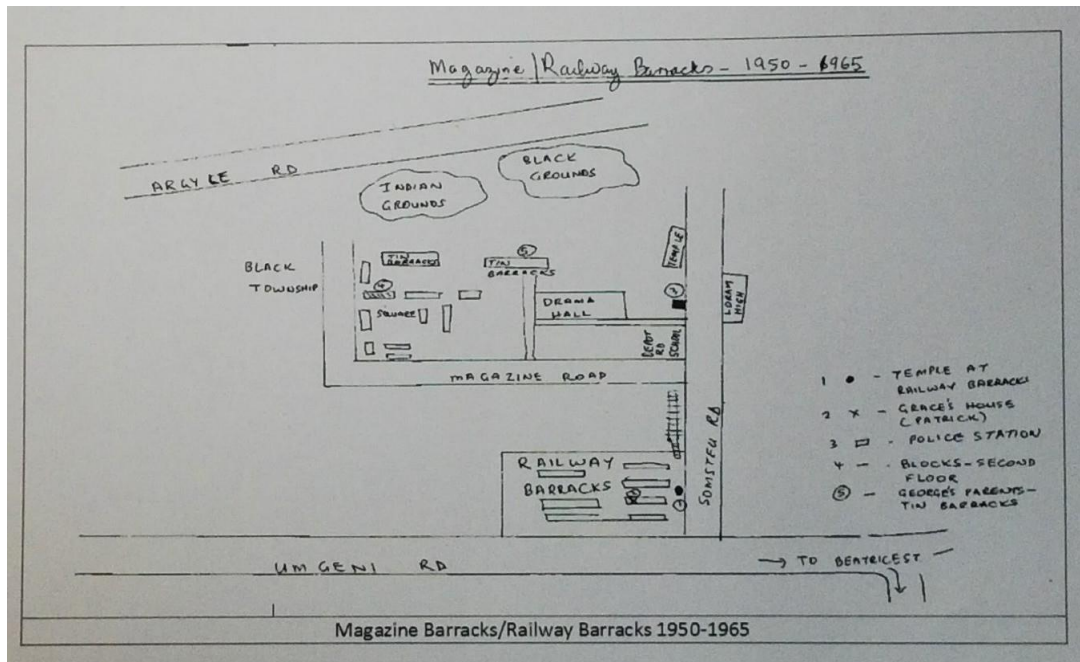 Magazine/Railway Barracks - 1950 - 1965
ARGYLE RD
BLACK
GROUNDS
INDIAN
GROUNDS
BLACK
TOWNSHIP
TIN
BARRACKS
5
TIN
BARRACKS
TEMPLE
4
SQUARE
DRAMA
HALL
3
LORAM
HIGH
DEPOT
RD
SCHOOL
MAGAZINE ROAD
SOMSTEU RD
RAILWAY
BARRACKS
1
1 ● - TEMPLE AT
RAILWAY BARRACKS
2 x - GRACE'S HOUSE
(PATRICK)
3 ▭ - POLICE STATION
4 - . BLOCKS-SECOND
FLOOR
⑤ - GEORGE'S PARENTS-
TIN BARRACKS
UMGENI RD
→ TO BEATRICEST
Magazine Barracks/Railway Barracks 1950-1965